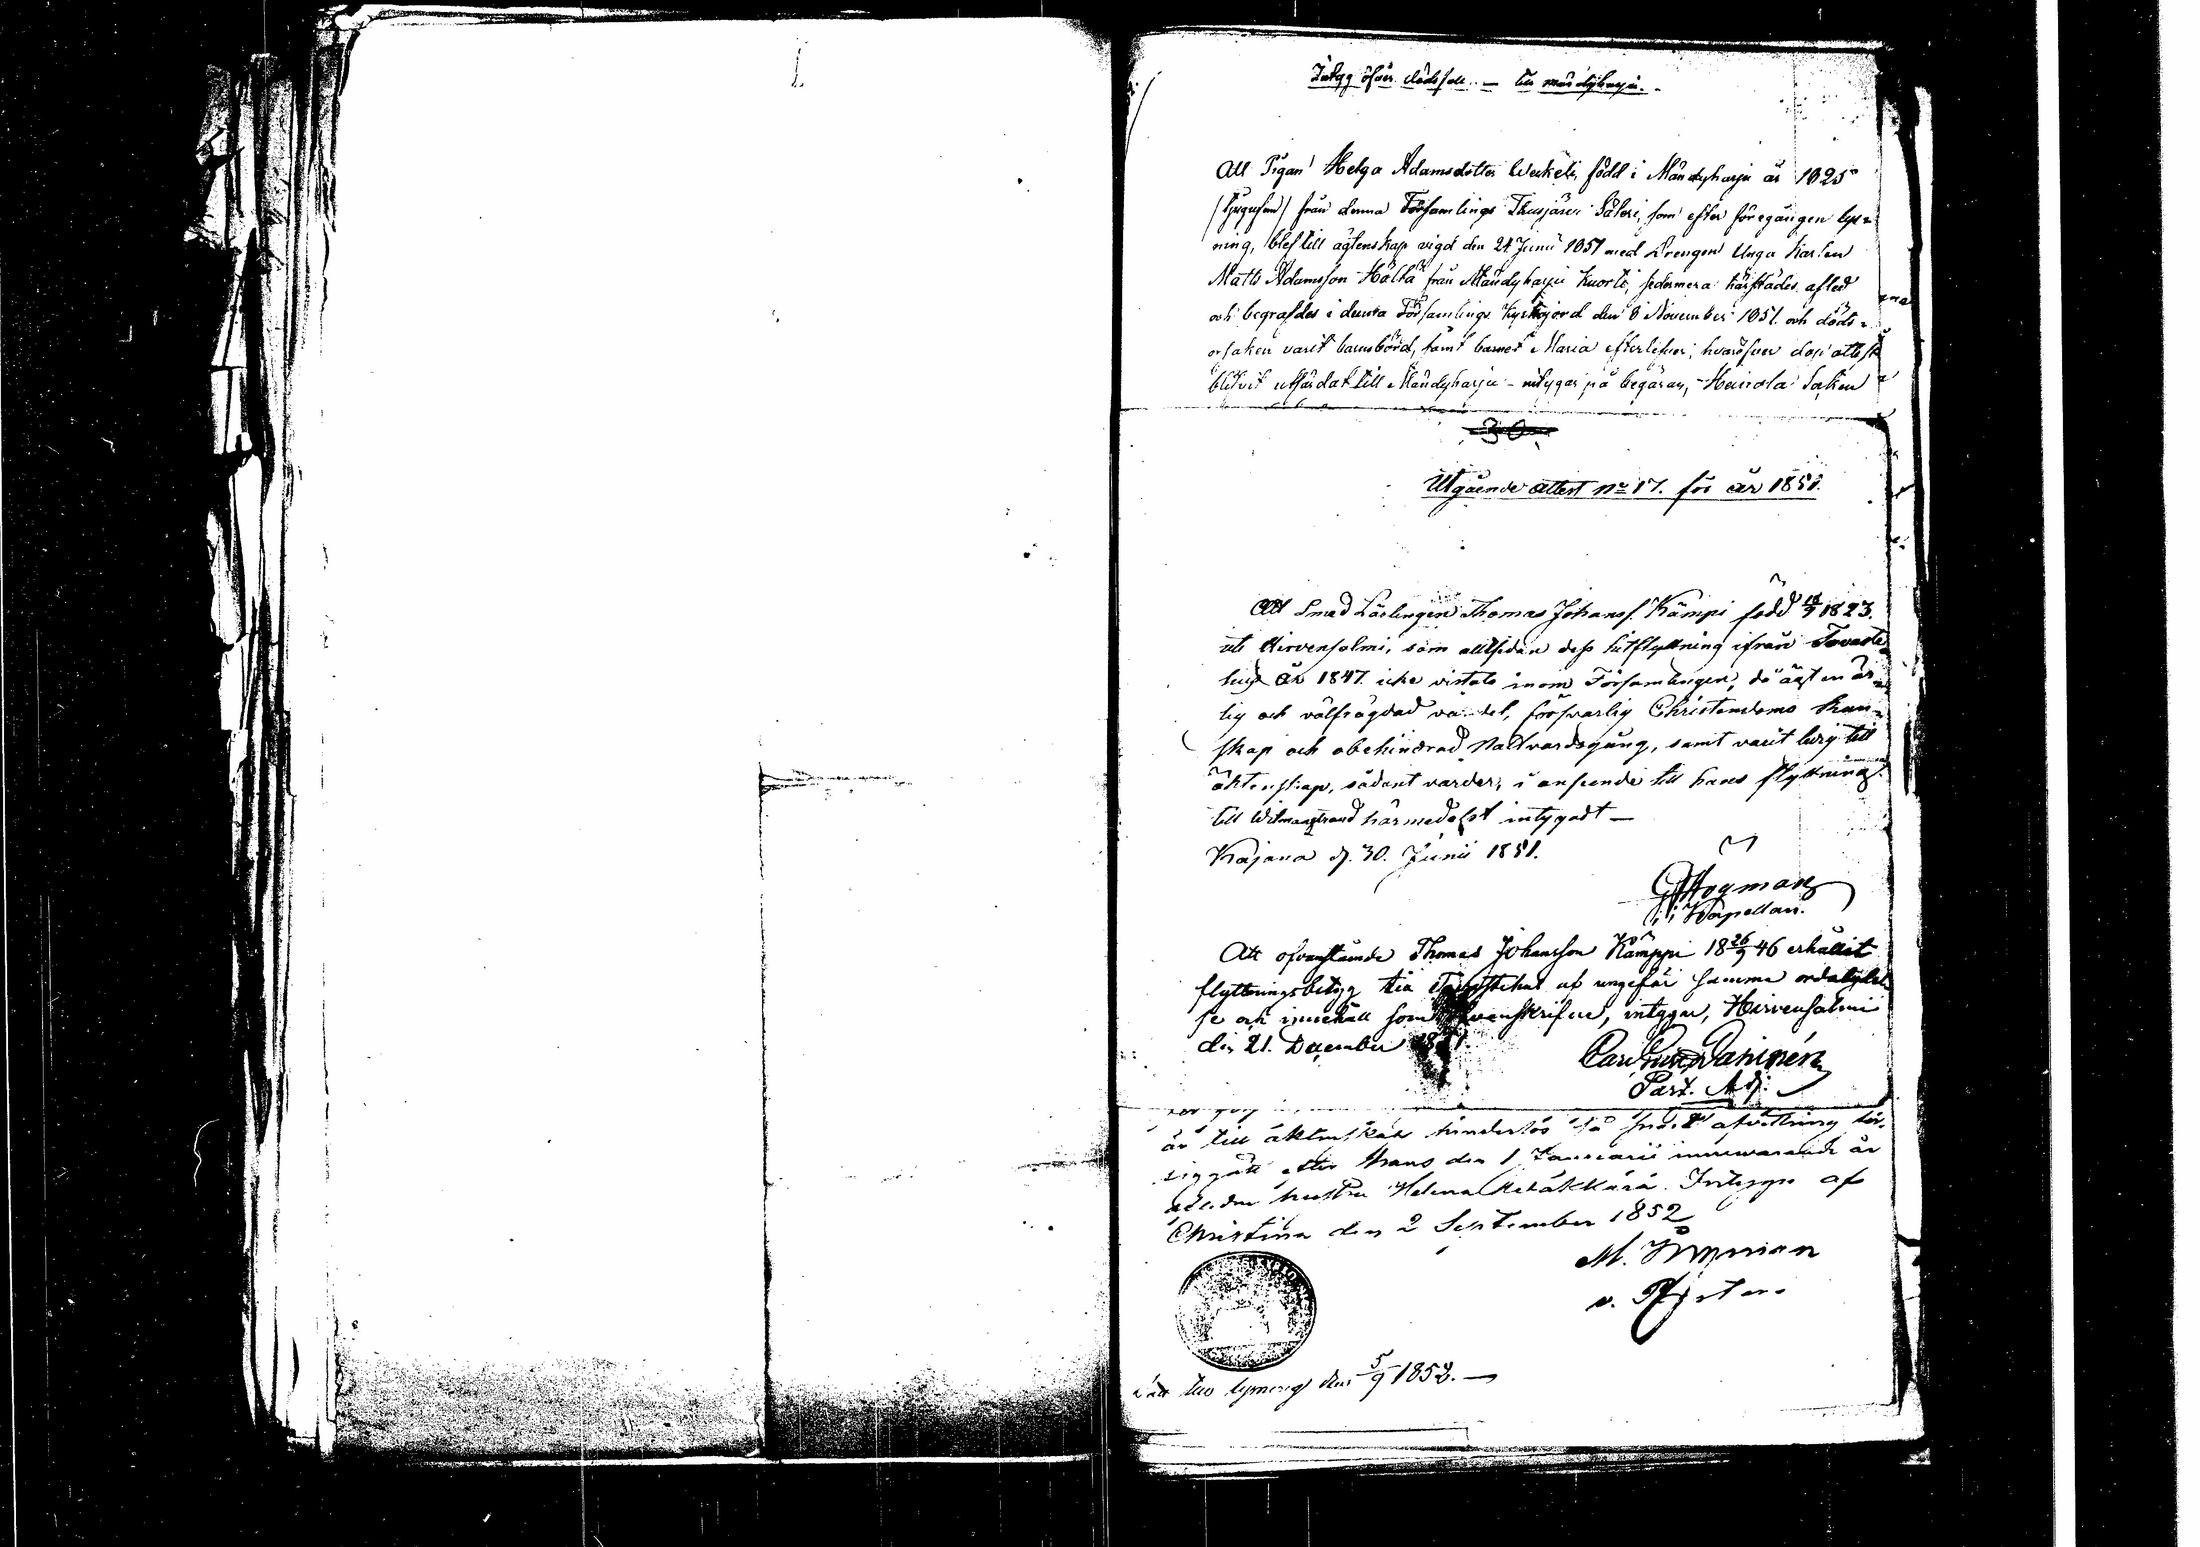 Intyg öfver dödsfall — till Mändyharju.
Att Pigan Helga Adamsdotter Werkele, född i Mändyharju år 1825
från denna Församlings Thusjärvi Säteri, som efter föregången lys-
ning, blef till ägtenskap vigd den 24 Junii 1851 med Drengen Unga Karlen
Matts Adamsson Hölttä från Mändyharju Kuorti, sedermera härstädes afled
och begrafdes i denna Församlings kyrkojord den 8 November 1851. och döds-
orsaken varit barnsbörd, samt barnet Maria efterlefver; hvaröfver attest
blifvit utfärdat till Mändyharju - intygar på begäran, - Heinola Socken
Utgående attest No 17. för år 1851.
Att Smed Lärlingen Thomas Johansf. Kämpi född 1823.
uti Hirvensalmi, som alltsedan dess hitflyttning ifrån Tavaste-
hus år 1847. icke vistats inom Församlingen, då ägt en är-
lig och välfrägdad vandel, försvarlig Christendoms kun-
skap och obehindrad Nattvardsgång, samt varit ledig till
äktenskap, sådant varder, i anseende till hans flyttning
till Wilmanstrand härmedelst intygadt —
Kajana d. 30. Junii 1851.
Hogman
Kapellan.
Att ofvanstående Thomas Johansson Kämppi 18 26/9 46 erhållit
flyttningsbetyg till Tavastehus af ungefär samma ordalydel-
se och innehåll som ofvanskrifne, intygar, Hirvensalmi
den 21. December 1851.
Carl Daninén
Past. Adj.
är till äktenskap hinderlös så snart afvittring för-
siggått efter hans den 1 Januarii innevarande år
aflidne hustru Helena. Intygas af
Christina den 2 September 1852
M. Ingman
v. Pastor.
lyssning den 5/9 1852. —